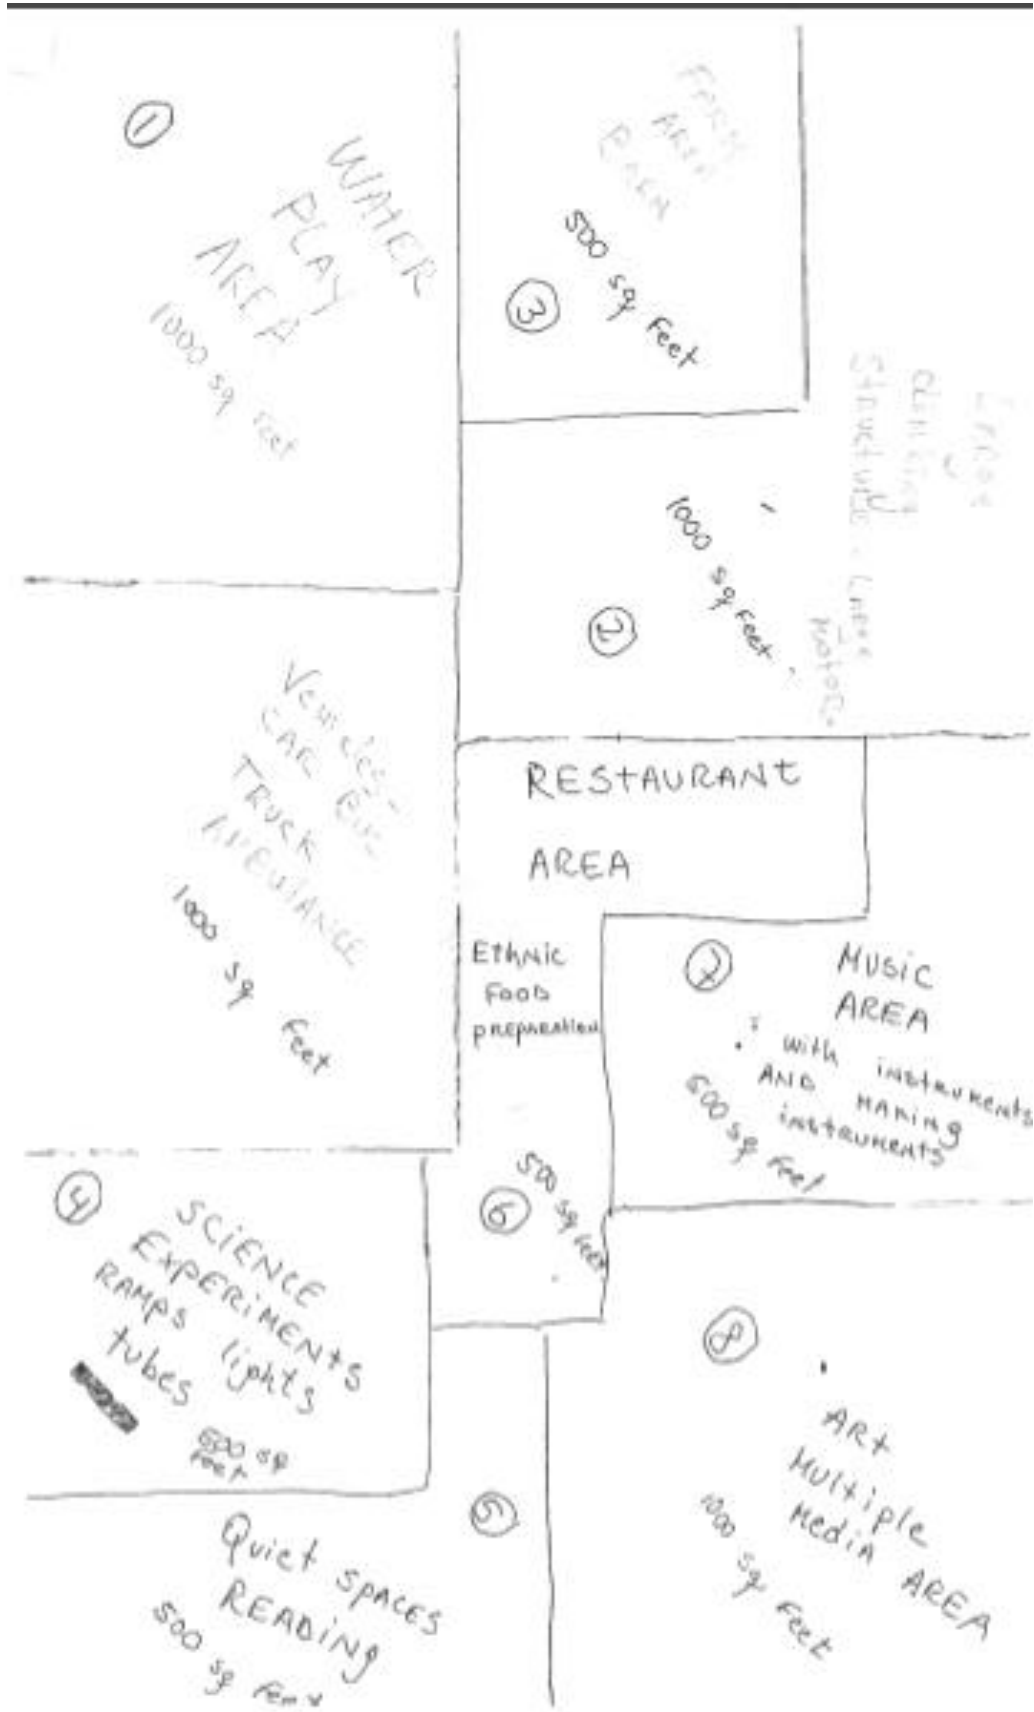 ①
WATER
PLAY
AREA
1000 sq feet
FARM
AREA
BARN
500 sq Feet
③
LARGE
climbing
Structure - LARGE
Motor
1000 sq Feet
②
Vehicles -
CAR
TRUCK
AMBULANCE
1000 sq feet
REStAURANt
AREA
EthNic
FOOD
preparation
500 sq feet
⑥
⑦
MUSiC
AREA
with instruments
AND MAKING
instruments
500 sq Feet
④
SCiENCE
EXPERiMENtS
RAMPS lights
tubes
500 sq
feet
⑤
Quiet SPACES
READiNg
500 sq Feet
⑧
ARt
Multiple
Media AREA
1000 sq Feet